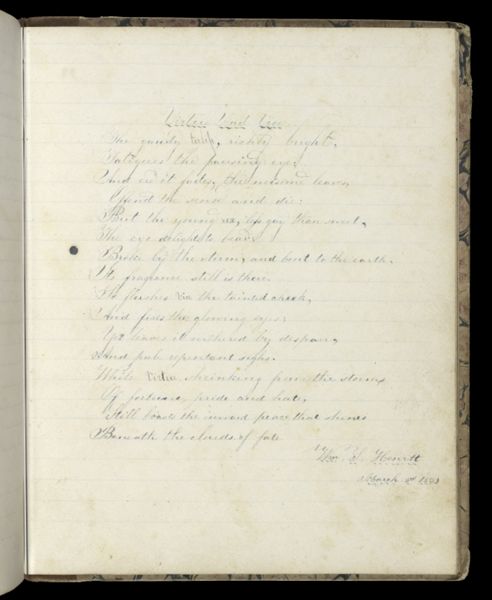 The gaudy tulip, richly bright,
Fatigues the pausing eye;
And ere it fades, the noisome leaves
Offend the sense and die:
But the young less gay than sweet,
The eye delights to bear
Broke by the storm, and bent to the earth.
Its fragrance still is there.
flushes the tainted cheek,
And fires the glowing eyes;
Yet leaves it withered by despair,
And pale repentant sighs.
While Virtue shrinking from the storms
Of fortune, pride and hate,
Still boasts the inward peace that shines
Beneath the clouds of fate
Wm. Hewitt
March